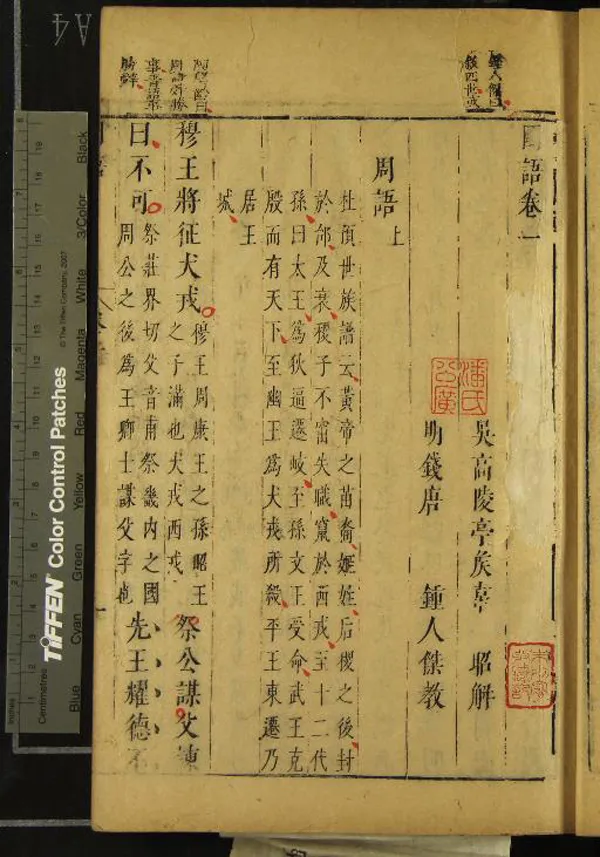 國語卷一
吳高陵亭矦韋 昭解
明錢唐 鍾人傑教
周語上
杜預世族譜云黃帝之苗裔姬姓后稷之後封
於邰及衰稷子不窋失職竄於西戎至十二代
孫曰太王為狄逼遷岐至孫文王受命武王克
殷而有天下至幽王為犬戎所殺平王東遷乃
居王
城
穆王將征犬戎
穆王周康王之孫昭王
之子滿也犬戎西戎
祭公謀父諫
曰不可
祭莊界切父音甫祭畿內之國
周公之後為王卿士謀父字也
先王耀德不
鍾人傑曰
A4
TIFFEN Color Control Patches
© The Tiffen Company, 2007
Inches
Centimetres
Blue
Cyan
Green
Yellow
Red
Magenta
White
3/Color
Black